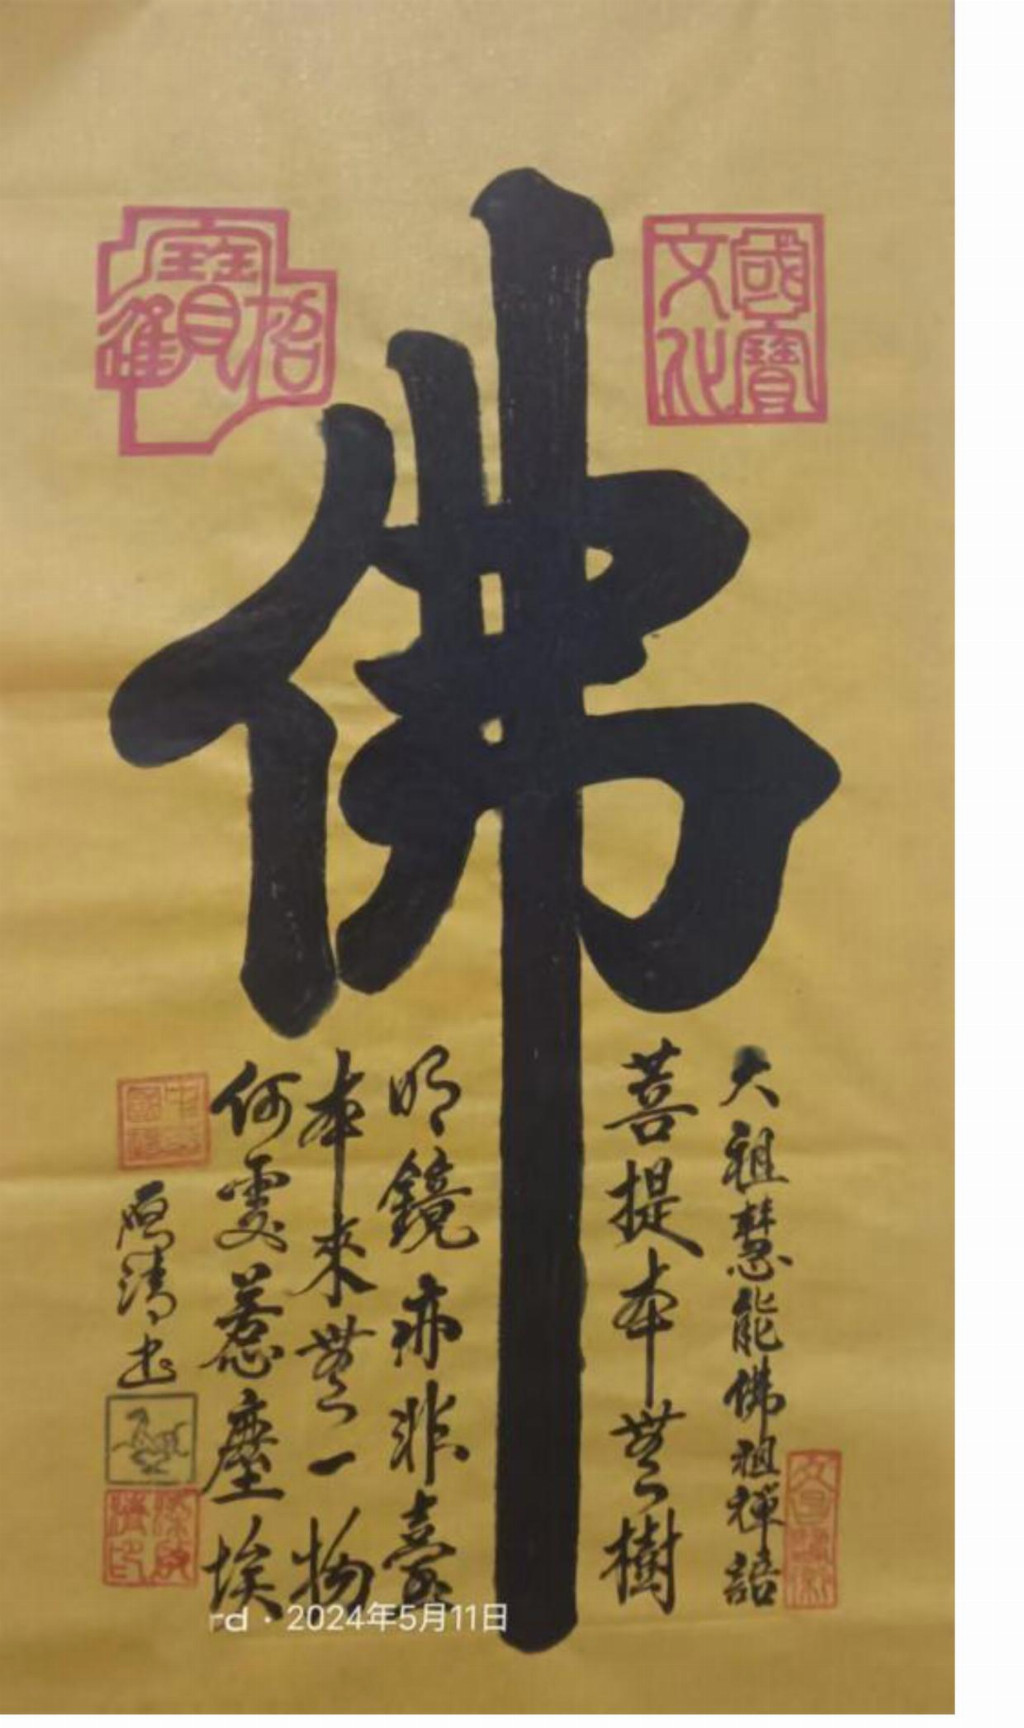 佛
國寶
文化
招
寶
大祖慧能佛祖禪語
菩提本無樹
明鏡亦非臺
本來無一物
何處惹塵埃
啟清書
rd · 2024年5月11日